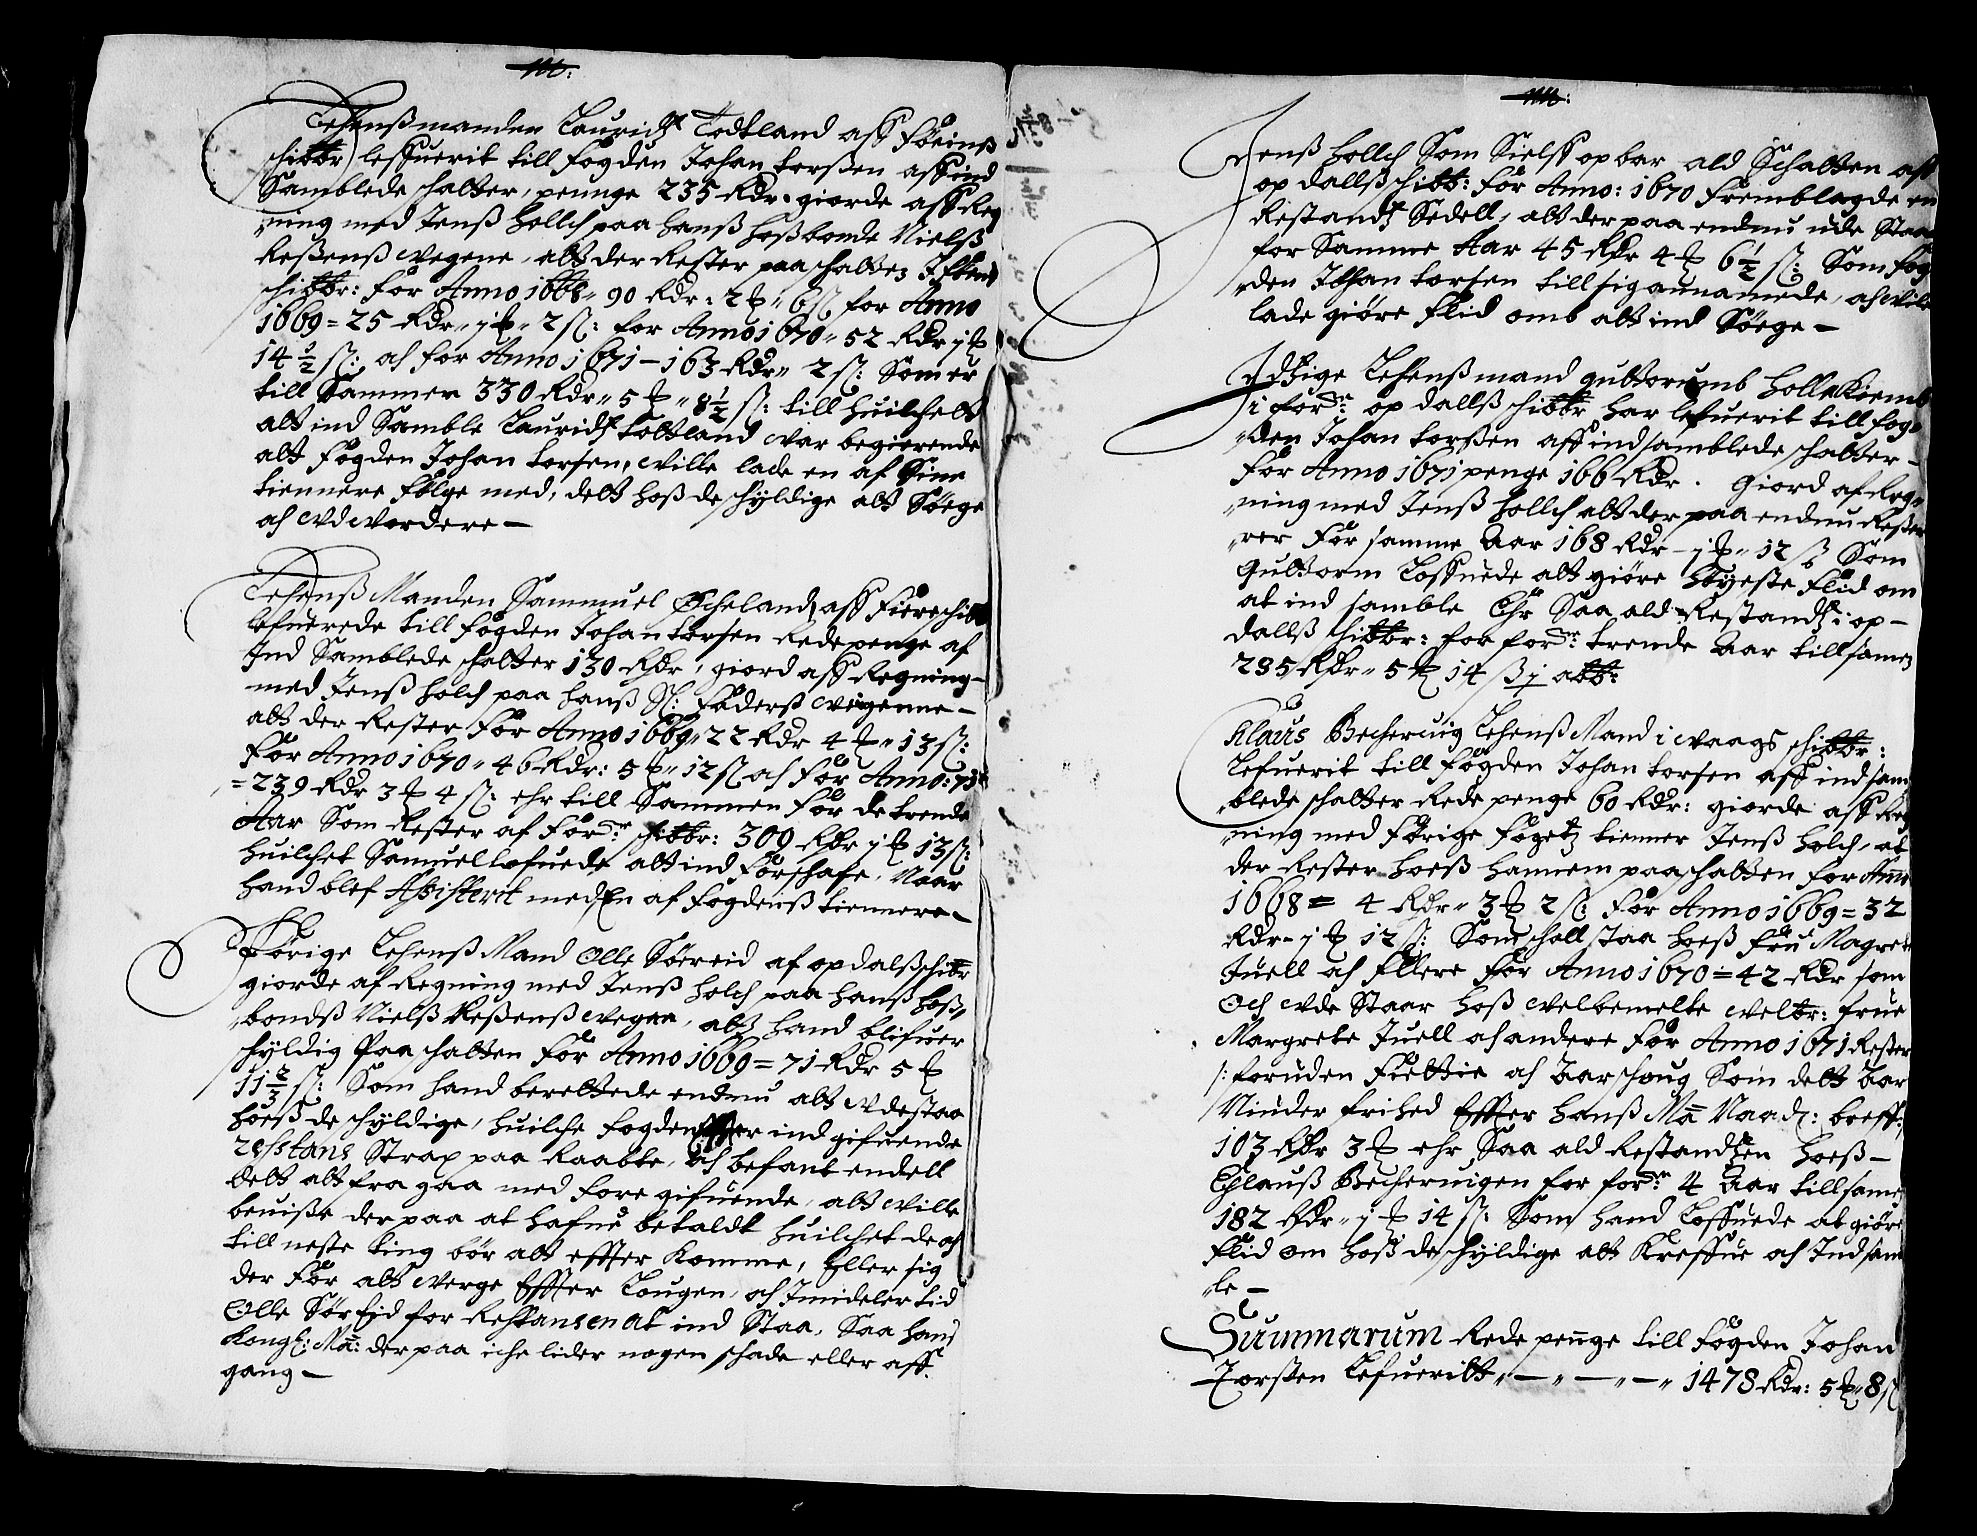 Lehenßmanden Lauridtz Todtland aff Føeinß
schibbr: leffuerit till fogden Johan torßen aff ind
Samblede schatter, penge 235 Rdr. giorde aff Reg
ning med Jenß Hollch paa hanß hoßbonde Nielß
Reßenß wegene, att der Rester paa schatten
schibbr: for Anno 1668 90 Rdr: 2 ℔ 6 ß for Anno
1669 = 25 Rdr j ℔ 2 ß: for Anno 1670 52 Rdr j ℔
14 ½ ß: och for Anno 1671 - 163 Rdr 2 ß: Som er
till Sammen 330 Rdr 5 ℔ 8½ ß: till huilchelt
att ind Samble Lauridtz tottland war begierende
att fogden Johan torsen, wille lade en af Sine
tiennere følge med, dett hoß de schyldige att Søege
och wdwordere -
Lehenß Manden Sammuel Øcheland aff Fiere schibb
lefuerede till fogden Johan torsen Rede penge af
Ind Samblede schatter 130 Rdr, giord aff Regning
med Jenß holch paa hanß Sl: faderß wegenne -
att der Rester for Anno 1669 22 Rdr 4 ℔ 13 ß:
for Anno 1670 46 Rdr: 5 ℔ 12 ß och for Anno: 71
= 239 Rdr 3 ℔ 4 ß: ehr till Sammen for de trende
Aar Som Rester af ford: schibbr: 309 Rdr j ℔ 13 ß:
huilchet Samuel lofuede att ind forschafe, Naar
hand blef Assisterit med En af fogdenß tiennere -
Forige Lehenß Mand Olle Søereid af opdalß schibbr
giorde af Regning med Jenß holch paa hanß hoß
bondß Nielß Reßenß wegen, att hand blifuer
schyldig Paa schatten for Anno 1669 = 71 Rdr 5 ℔
11 ⅔ ß: Som hand berettede endnu att wdestaa
hoeß de schyldige, huilche fogden effter ind gifuende
Resstans Strax paa Raabte, och befant endell
delt att fra gaa med fore gifuende, att wille
beuiße der paa at hafue betaldt huilchet de och
till neste ting bør att effter komme, eller sig
der for att werge Effter Lougen, och Imidelertid
Olle Sør Eid for Restansen at ind Staa, Saa hanß
Kongl: Ma: der paa iche lider nogen schade eller aff
gang -
Jenß hollch Som Sielff op bar ald Schatten aff
op dallß schibb: for Anno: 1670 fremblagde en
Restandtz Sedell, att der paa endnu ude Staar
for Samme Aar 45 Rdr 4 ℔ 6 ½ ß: Som fog
den Johan torsen till sig annamede, och wille
lade giøre flid omb att ind Søege -
Idtzige Lehenßmand guttorumb Holle Kiemb
i ford: op dallß schibbr har lefuerit till fog
den Johan torßen aff ind samblede schatter -
for Anno 1671 penge 166 Rdr. Giord af Reg
ning med Jenß hollch att der paa endnu Reste
rer for samme Aar 168 Rdr - j ℔ 12 ß Som
Guttorm Loffuede att giøre høyeste flid om
at ind samble Ehr Saa ald Restandtz i op -
dallß schibbr: for ford: trende Aar till samen
285 Rdr 5 ℔ 14 ß j alb:
Klaus Becheruig Lehenß Mand i waags schibbr:
Lefuerit till fogden Johan torsen aff ind sam
blede schatter Rede penge 60 Rdr: giorde aff Reg
ning med forige fogetz tienner Jenß holch, at
der Rester hoeß hannem paa schatten for Anno
1668 = 4 Rdr 3 ℔ 2 ß: for Anno 1669 = 32
Rdr - j ℔ 12 ß: Som schall staa hoeß fru Magrete
Juell och flere for Anno 1670 = 42 Rdr som
Och wde Staar hoß welbemelte welbr: frue
Margrete Juell och andere for Anno 1671 Rester
/: foruden Fiettie och Aarschoug Som dett Aar
Niuder frihed Effter hanß Ma Naadz: breff:/
103 Rdr 3 ℔ ehr Saa ald Restandtzen hoeß -
Chlauß Becheruigen for ford: 4 Aar till samen
182 Rdr j ℔ 14 ß: Som hand Loffuede at giøre
flid om hoß de schyldige att Kreffue och Ind sam
le -
Summarum Rede penge till fogden Johan
Torsten Lefueritt - - - 1478 Rdr: 5 ℔ 8 ß